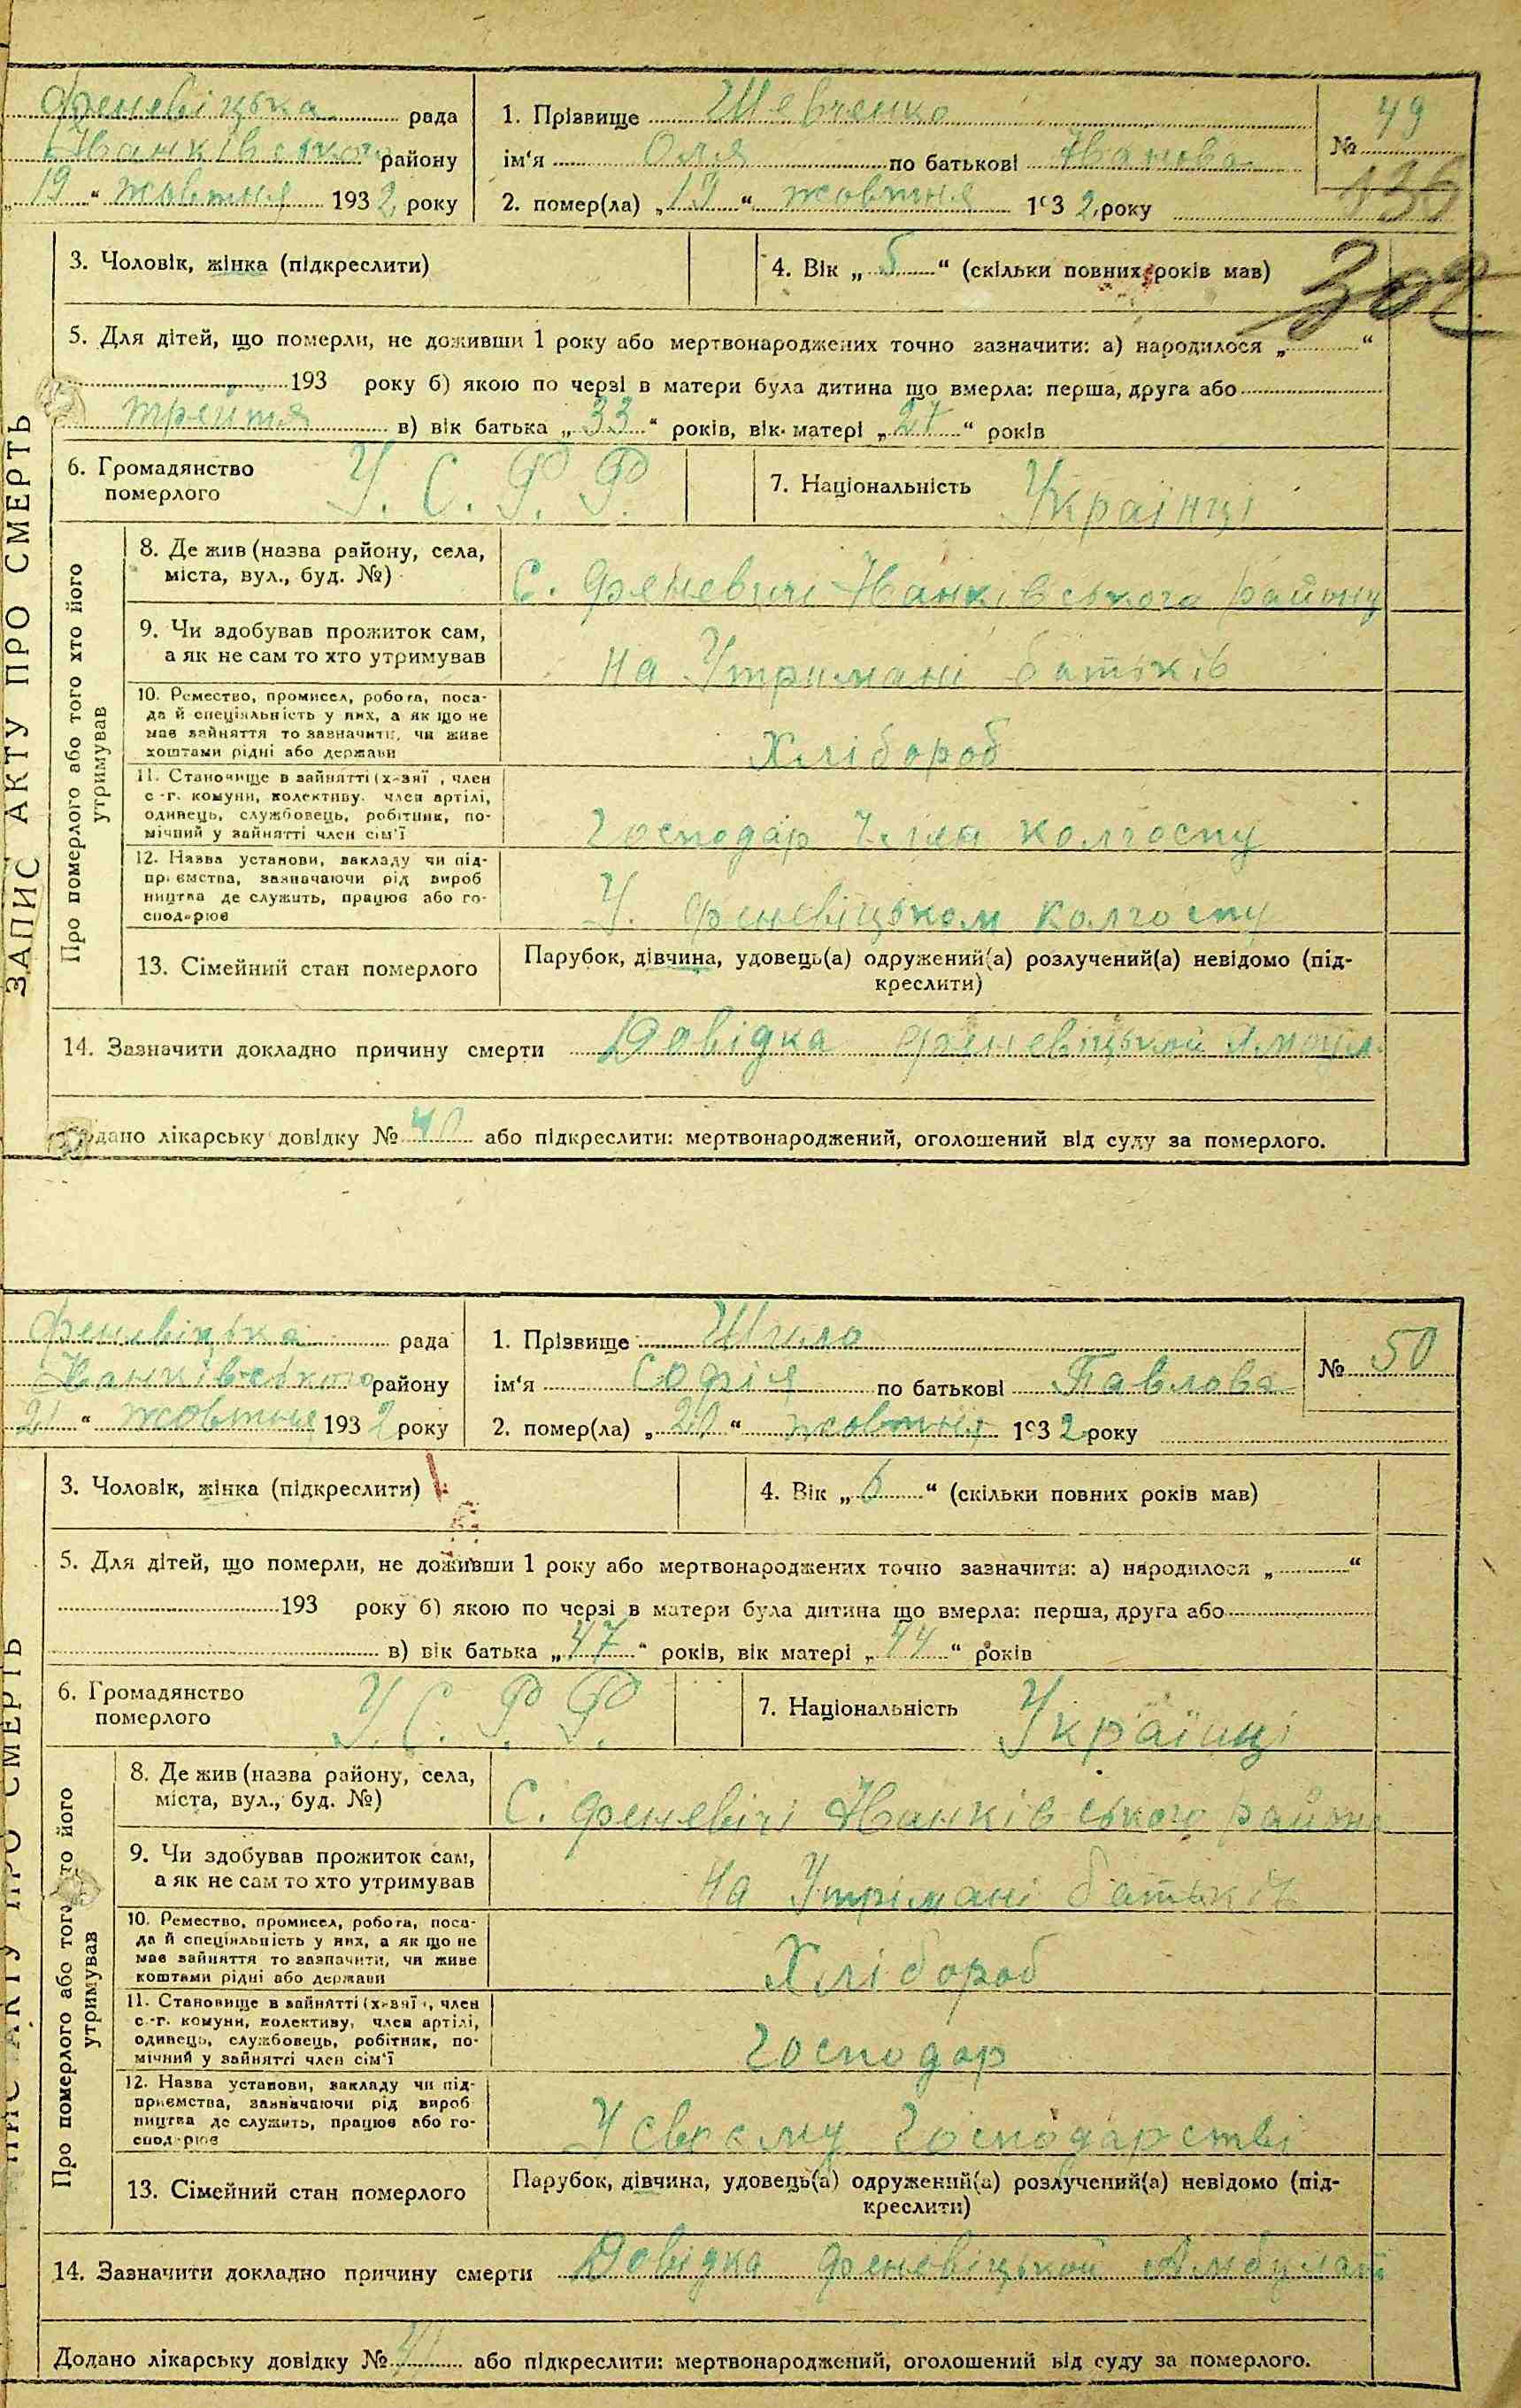 Феневіцька рада
Іванківського району
„19“ жовтня 1932 року
1. Прізвище Шевченко
ім'я Оля по батькові Іванова
2. помер(ла) „19“ жовтня 1932 року
№ 49
136
302
3. Чоловік, жінка (підкреслити)
4. Вік „5“ (скільки повних років мав)
5. Для дітей, що померли, не доживши 1 року або мертвонароджених точно зазначити: а) народилося „ “
193 року б) якою по черзі в матери була дитина що вмерла: перша, друга або
трейтя в) вік батька „33“ років, вік матері „27“ років
6. Громадянство
померлого
У. С. Р. Р.
7. Національність Українці
ЗАПИС АКТУ ПРО СМЕРТЬ
Про померлого або того хто його
утримував
8. Де жив (назва району, села,
міста, вул., буд. №)
С. Феневичі Іванківського району
9. Чи здобував прожиток сам,
а як не сам то хто утримував
на Утримані батьків
10. Ремество, промисел, робота, поса-
да й спеціяльність у них, а як що не
має зайняття то зазначити, чи живе
коштами рідні або держави
Хлібороб
11. Становище в зайнятті (х-зяї , член
с-г. комуни, колективу, член артілі,
одинець, службовець, робітник, по-
мічний у зайнятті член сім'ї
Господар Член колгоспу
12. Назва установи, закладу чи під-
приємства, зазначаючи рід вироб
ництва де служить, працює або го-
сподарює
У. Феневіцьком колгоспу
13. Сімейний стан померлого
Парубок, дівчина, удовець(а) одружений(а) розлучений(а) невідомо (під-
креслити)
14. Зазначити докладно причину смерти Довідка Феневіцькой
дано лікарську довідку № 40 або підкреслити: мертвонароджений, оголошений від суду за померлого.
Феневіцька рада
Іванківського району
„21“ жовтня 1932 року
1. Прізвище Шило
ім'я Софія по батькові Павлова
2. помер(ла) „20“ жовтня 1932 року
№ 50
3. Чоловік, жінка (підкреслити)
4. Вік „6“ (скільки повних років мав)
5. Для дітей, що померли, не доживши 1 року або мертвонароджених точно зазначити: а) народилося „ “
193 року б) якою по черзі в матери була дитина що вмерла: перша, друга або
в) вік батька „47“ років, вік матері „44“ років
6. Громадянство
померлого
У. С. Р. Р.
7. Національність Українці
Про померлого або того хто його
утримував
8. Де жив (назва району, села,
міста, вул., буд. №)
С. Феневічі Іванківського району
9. Чи здобував прожиток сам,
а як не сам то хто утримував
на Утрімані батьків
10. Ремество, промисел, робота, поса-
да й спеціяльність у них, а як що не
має зайняття то зазначити, чи живе
коштами рідні або держави
Хлібороб
11. Становище в зайнятті (х-зяї , член
с-г. комуни, колективу, член артілі,
одинець, службовець, робітник, по-
мічний у зайнятті член сім'ї
Господар
12. Назва установи, закладу чи під-
приємства, зазначаючи рід вироб
ництва де служить, працює або го-
сподарює
У своєму Господарстві
13. Сімейний стан померлого
Парубок, дівчина, удовець(а) одружений(а) розлучений(а) невідомо (під-
креслити)
14. Зазначити докладно причину смерти Довідка Феневіцькой Амбулат
Додано лікарську довідку № або підкреслити: мертвонароджений, оголошений від суду за померлого.